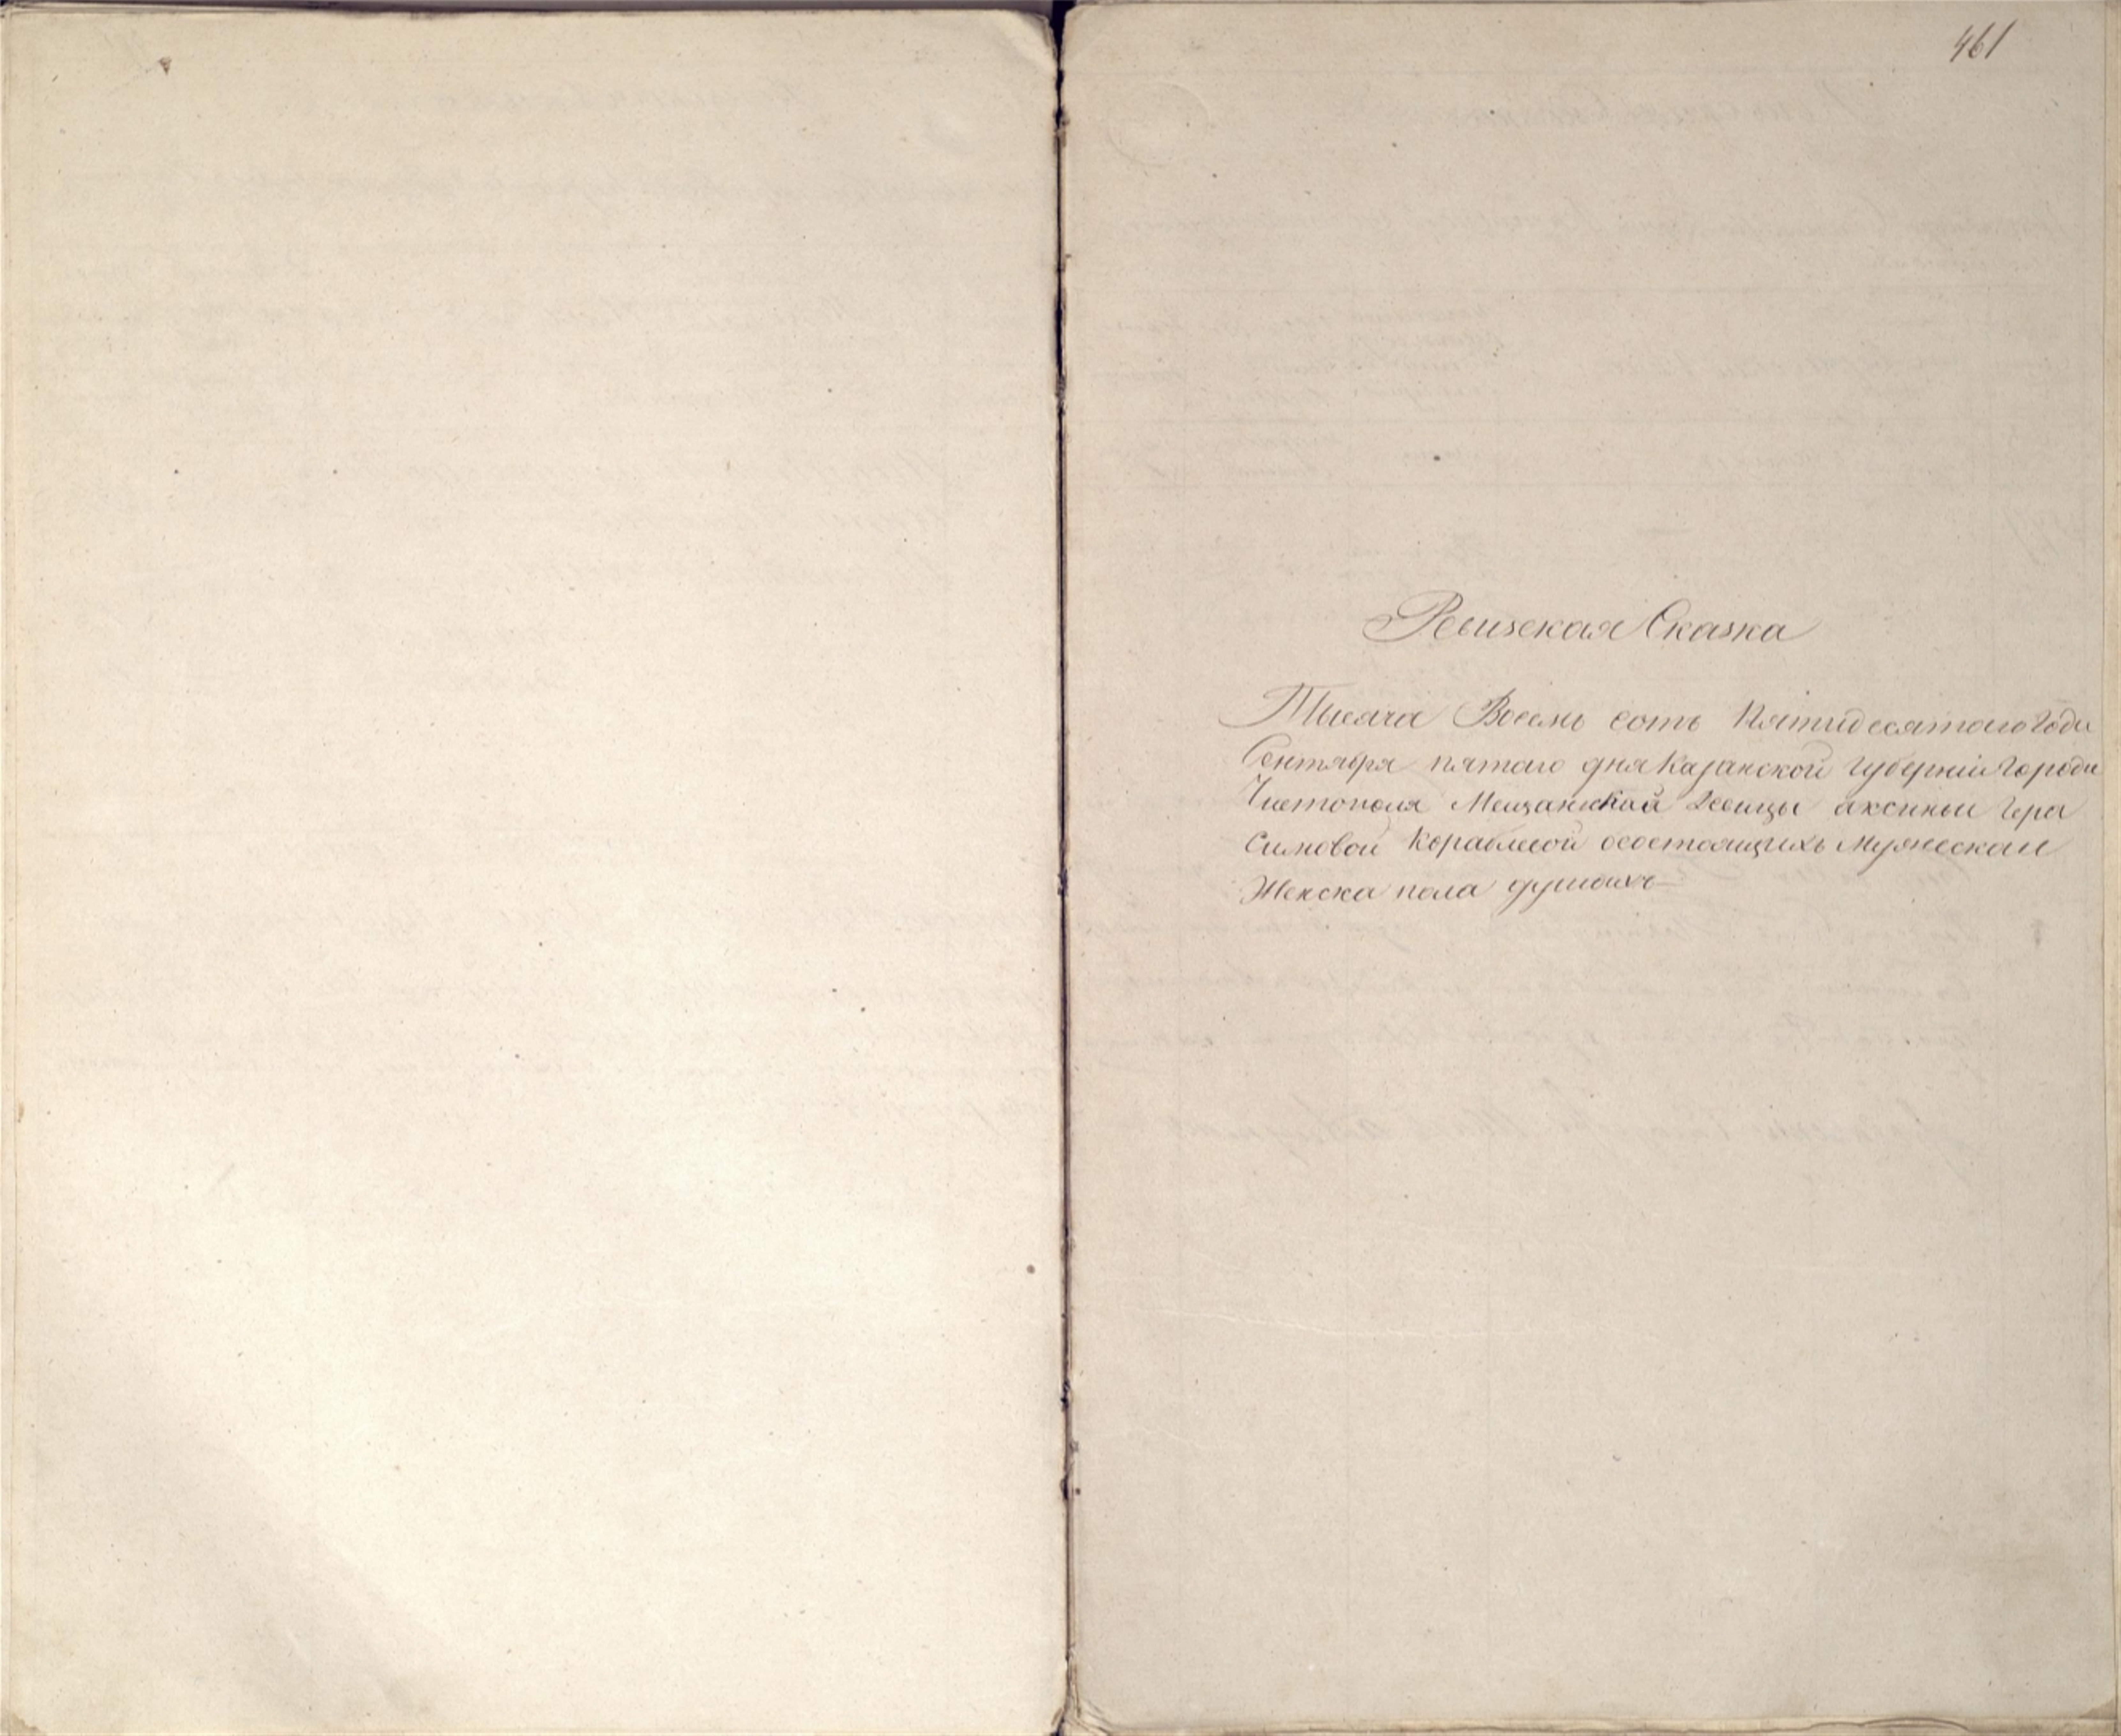 461
Ревизская Сказка
Тысяча Восемь сотъ Пятидесятаго Года
Сентября пятаго дня Казанской Губерніи Города
Чистополя Мещанской Девицы аксиньи Гера
симовой осостоящихъ мужеска и
Женска пола душахъ